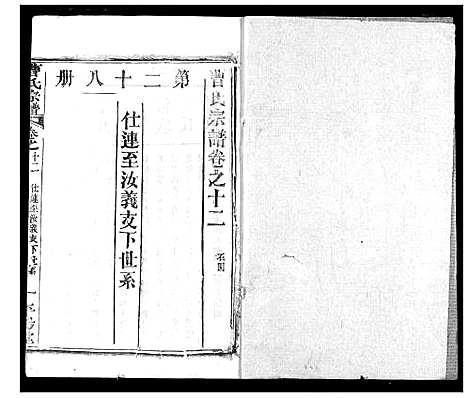 曹氏宗譜卷之十二
第二十八册
仕連至汝義支下世系
曹氏宗譜
卷之十二
仕連至汝義支下世系
一